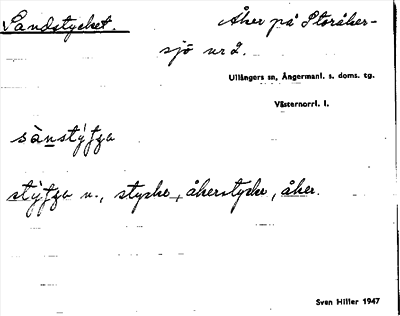 Sandstycket. Åker på Storåker-
sjö nr 2.
Ullångers sn, Ångermanl. s. doms. tg.
Västernorrl. l.
n., stycke, åkerstycke, åker.
Sven Hiller 1947